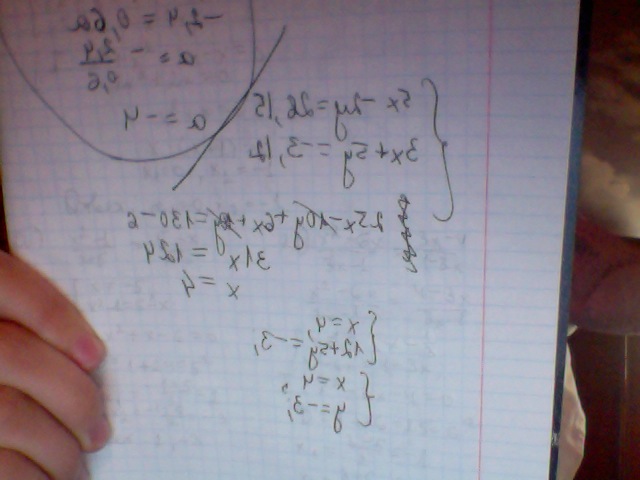 -2,4 = 0,6a
a = - 2,4/0,6
a = -4
{ 5x - 2y = 26, |5
3x + 5y = -3, |2
25x - 10y + 6x + 10y = 130 - 6
31x = 124
x = 4
{ x = 4,
12 + 5y = -3,
{ x = 4,
y = -3,